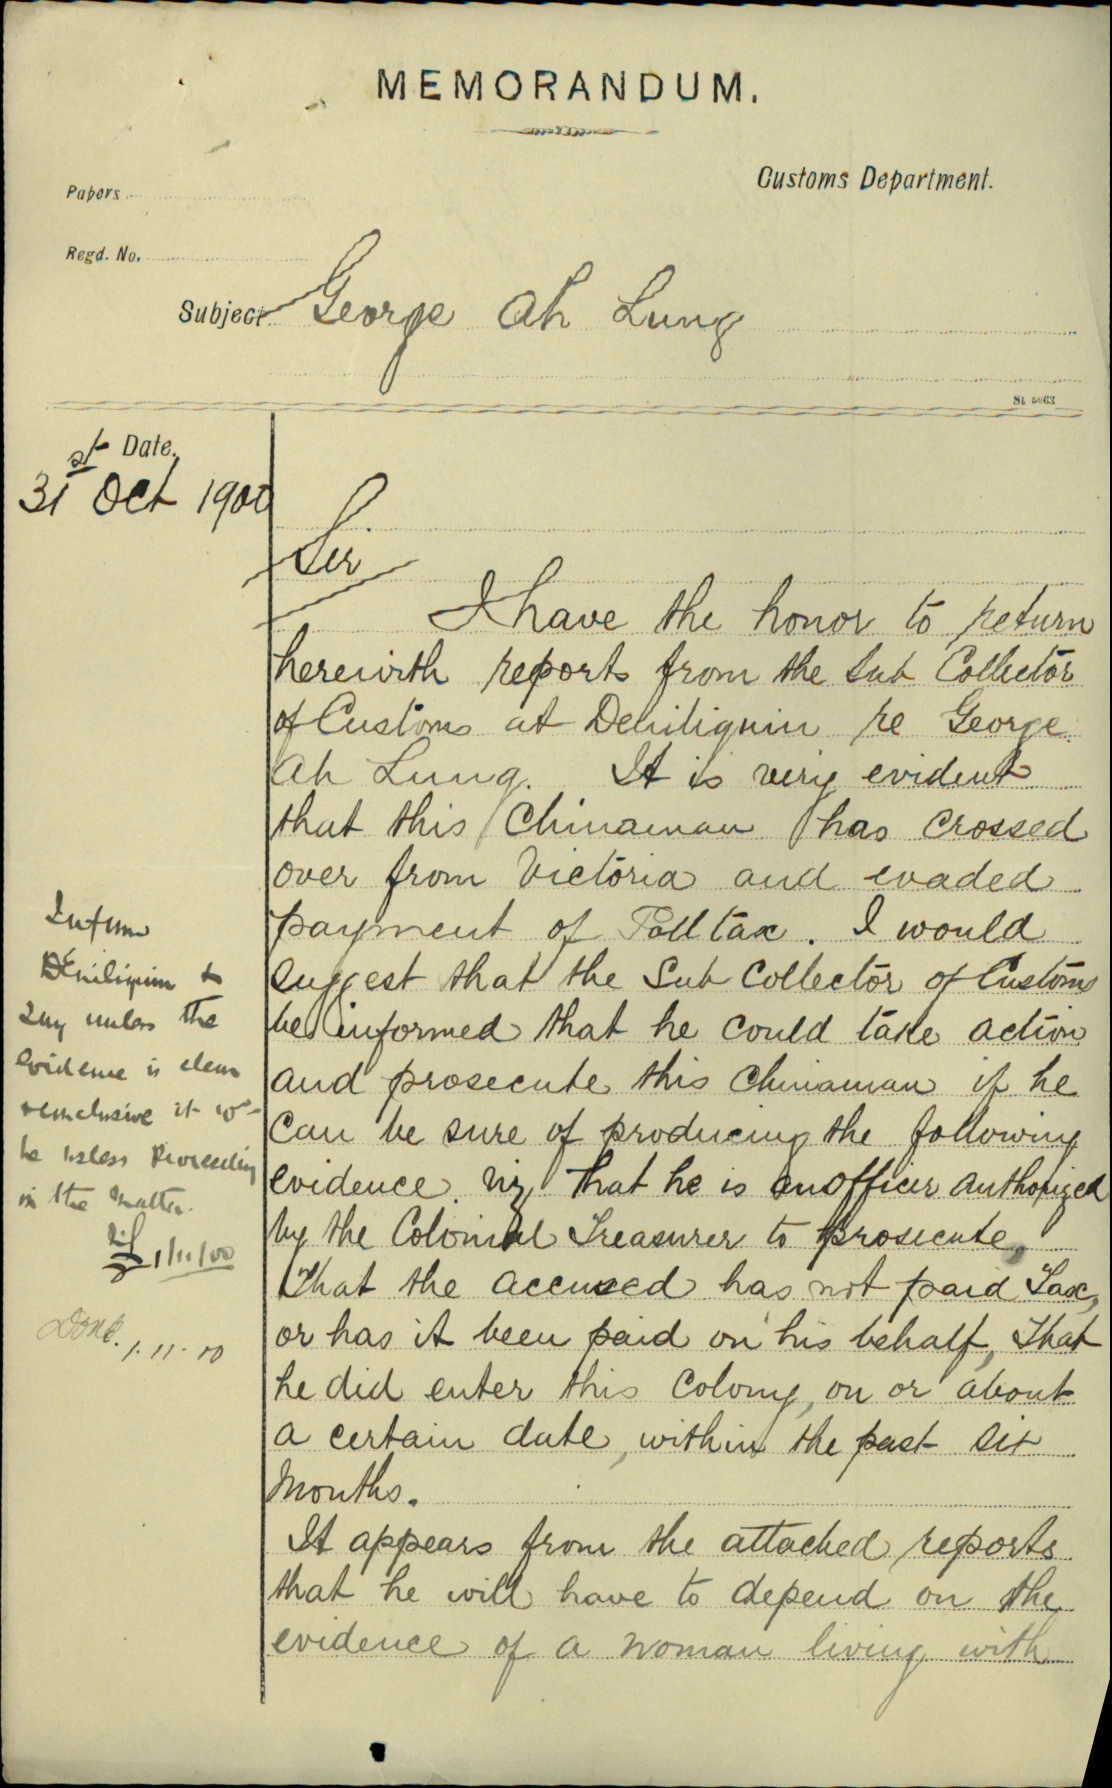 MEMORANDUM.
Customs Department.
Papers
Regd. No.
Subject George Ah Lung
St 5063
Date.
31st Oct 1900
Sir
I have the honor to return
herewith reports from the Sub Collector
of Customs at Deniliquin re George
Ah Lung. It is very evident
that this Chinaman has crossed
over from Victoria and evaded
payment of Poll tax. I would
suggest that the Sub Collector of Customs
be informed that he could take action
and prosecute this Chinaman if he
can be sure of producing the following
evidence. viz, that he is an officer authorized
by the Colonial Treasurer to prosecute,
That the accused has not paid Tax,
or has it been paid on his behalf, That
he did enter this Colony, on or about
a certain date, within the past six
Months.
It appears from the attached reports
that he will have to depend on the
evidence of a woman living with
Inform
Deniliquin &
say unless the
evidence is clear
conclusive it wd
be useless proceeding
in the matter.
1/11/00
Done.
1.11.00